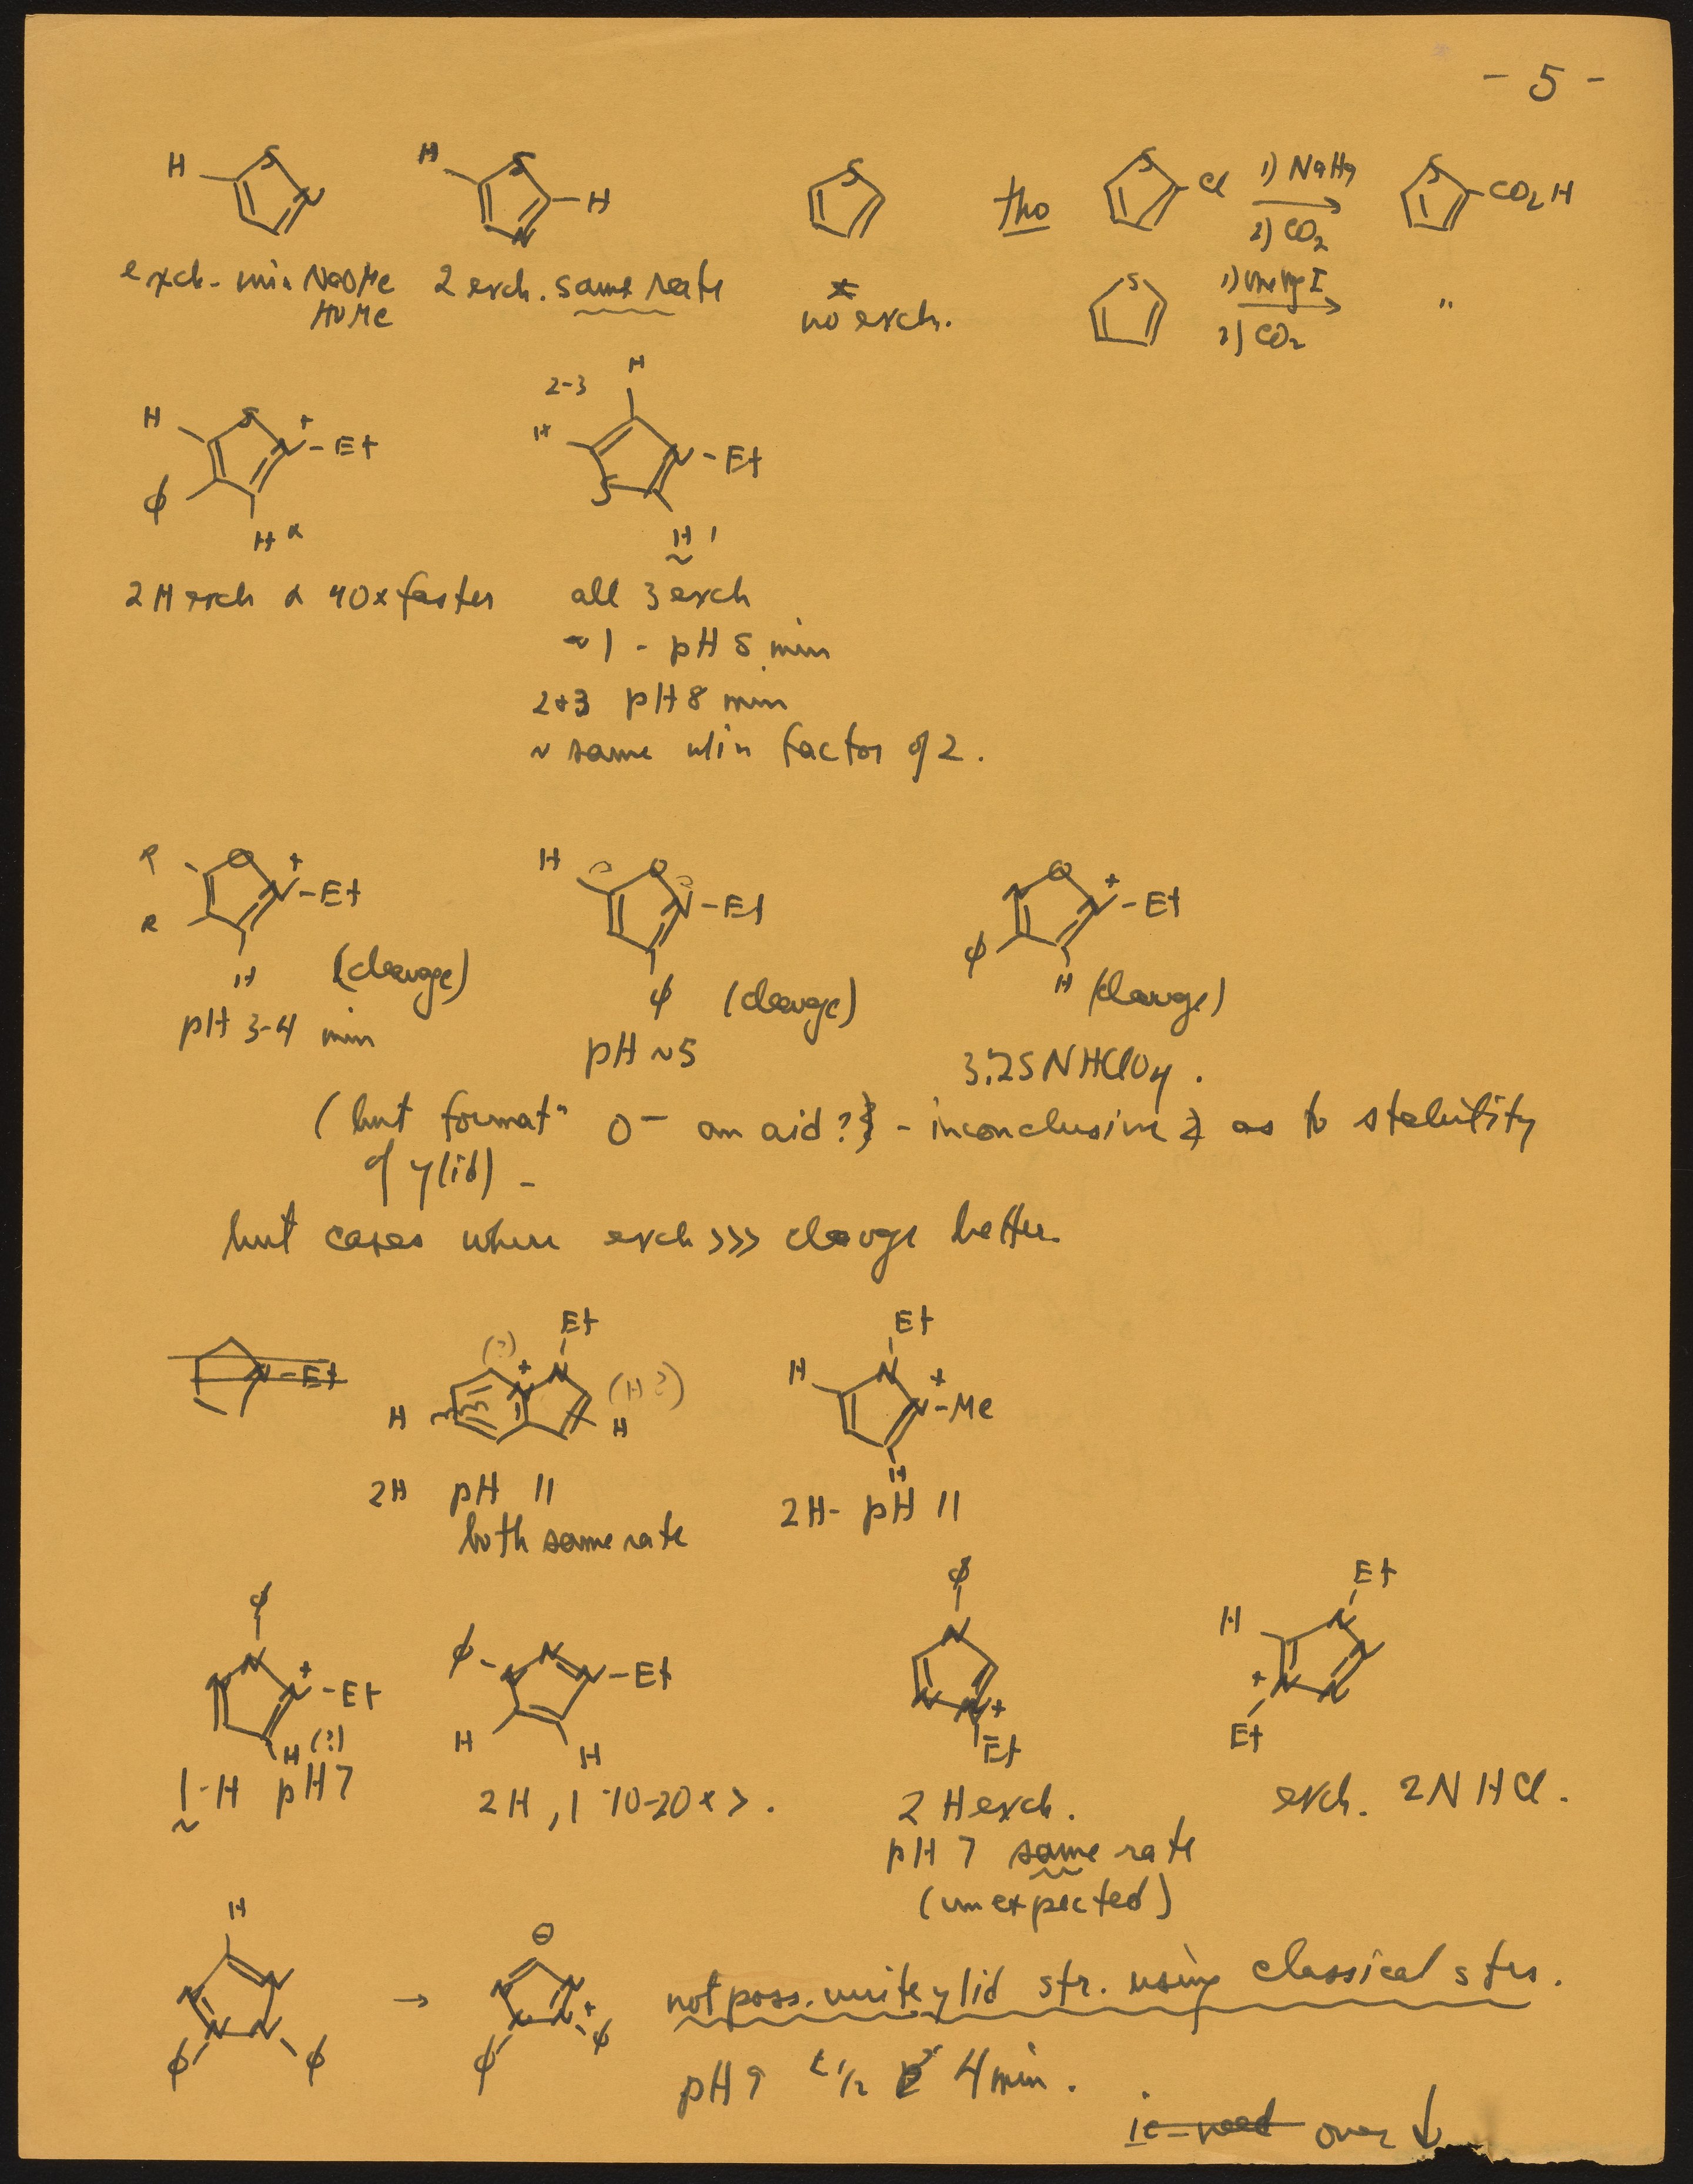 - 5 -
H S N
H S N H
S
tho
S Cl 1) NaHg 2) CO2 S CO2H
exch. min NaOMe
HOMe
2 exch. same rate
no exch.
S 1) MeMgI 2) CO2 "
H S N + - Et
φ H α
2-3 H
H N - Et
S H 1
2H exch α 40x faster
all 3 exch
~ 1 - pH 5 min
2+3 pH 8 min
~ same w/in factor of 2.
R O N + - Et
R H (cleavge)
pH 3-4 min
H O N - Et
φ (cleavge)
pH ~5
N O N + - Et
φ H (cleavge)
3.25 N HClO4.
(but format^n O⁻ an aid? - inconclusive as to stability
of ylid) -
but cases where exch >>> cleavge better.
N - Et
Et
(?) + N N (H?)
H H
2H pH 11
both same rate
Et
H N + N - Me
H
2H - pH 11
φ
N N N + - Et
H (?)
1-H pH 7
φ - N N N - Et
H H
2H, 1 10-20x >.
φ
N N N +
Et
2 H exch.
pH 7 same rate
(unexpected)
Et
H N N
+ N N
Et
exch. 2N HCl.
H
N N N N
φ φ
→
⊖
N N N N +
φ φ
not poss. write ylid str. using classical strs.
pH 9 t 1/2 4 min.
ie - need over ↓